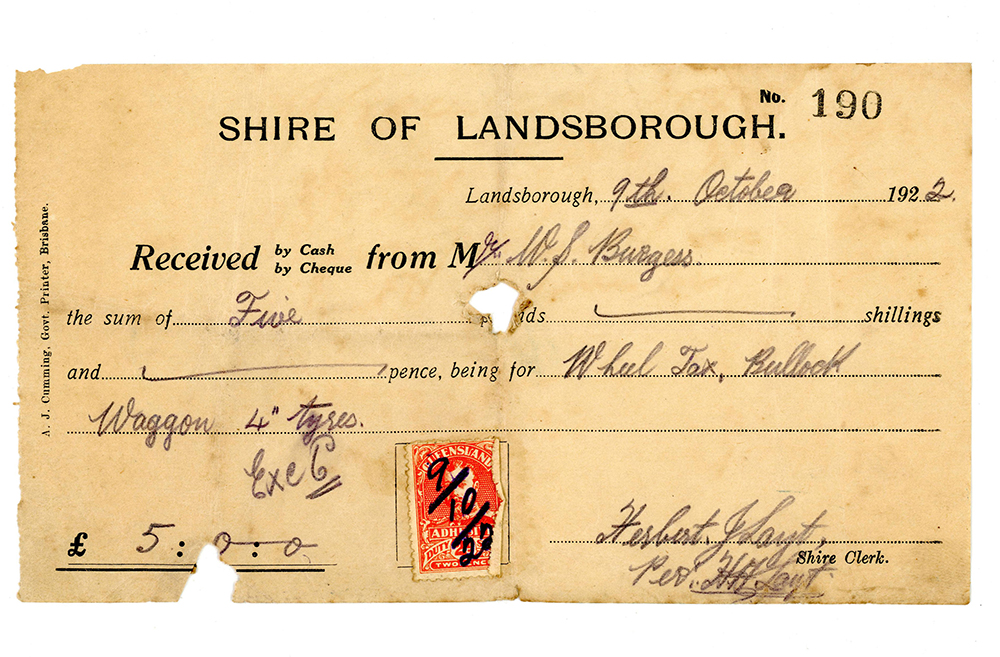 No. 190
SHIRE OF LANDSBOROUGH.
Landsborough, 9th. October 1922.
Received by Cash by Cheque from Mr. W. S. Burgess
the sum of Five pounds shillings
and pence, being for Wheel Tax, Bullock
Waggon 4" tyres.
Exc
£ 5 : 0 : 0
QUEENSLAND
9/10/22
ADHESIVE
DUTY
TWO PENCE
Herbert J Layt.
Shire Clerk.
Per. Layt.
A. J. Cumming, Govt. Printer, Brisbane.